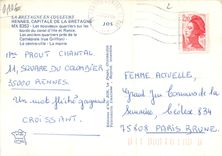 LA BRETAGNE EN COULEURS
RENNES, CAPITALE DE LA BRETAGNE
MX 8352 - Les nouveaux quartiers sur les
bords du canal d'Ille et Rance.
Les anciens quartiers près de la
Cathédrale (rue Griffon).
Le centre-ville. La mairie
JOS
Mme PROUT CHANTAL
11, SQUARE DU COLOMBIER
35000 RENNES
Un mot fléché gagnant
CROISSANT.
FEMME ACTUELLE,
Grand Jeu Concours de la
Semaine Nicolas 834
75608 PARIS BRUNE.